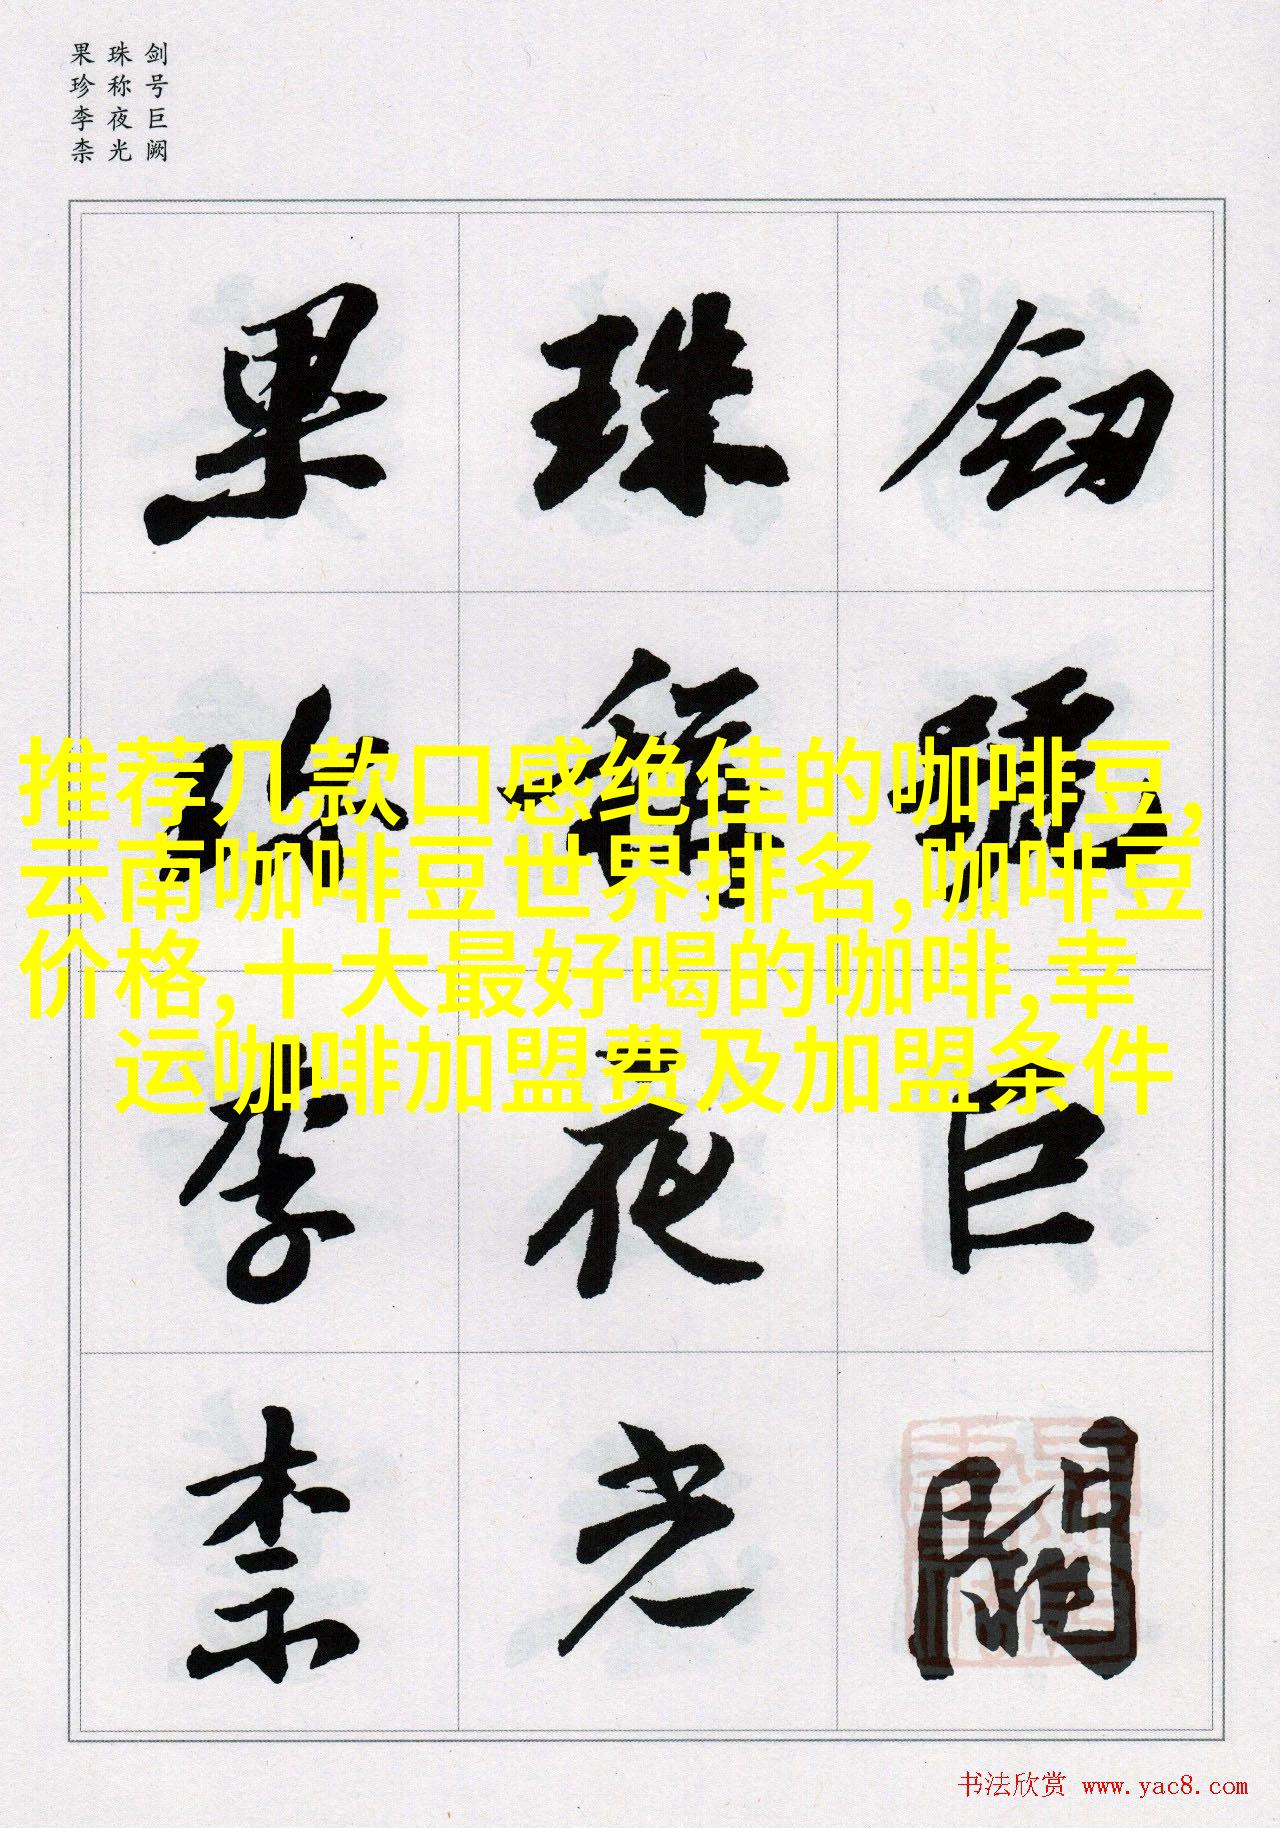 剑号巨阙
珠称夜光
果珍李柰
劒號巨闕
珠稱夜光
果珍李柰
推荐几款口感绝佳的咖啡豆,
云南咖啡豆世界排名,咖啡豆
价格,十大最好喝的咖啡,幸
运咖啡加盟费及加盟条件
书法欣赏 www.yac8.com